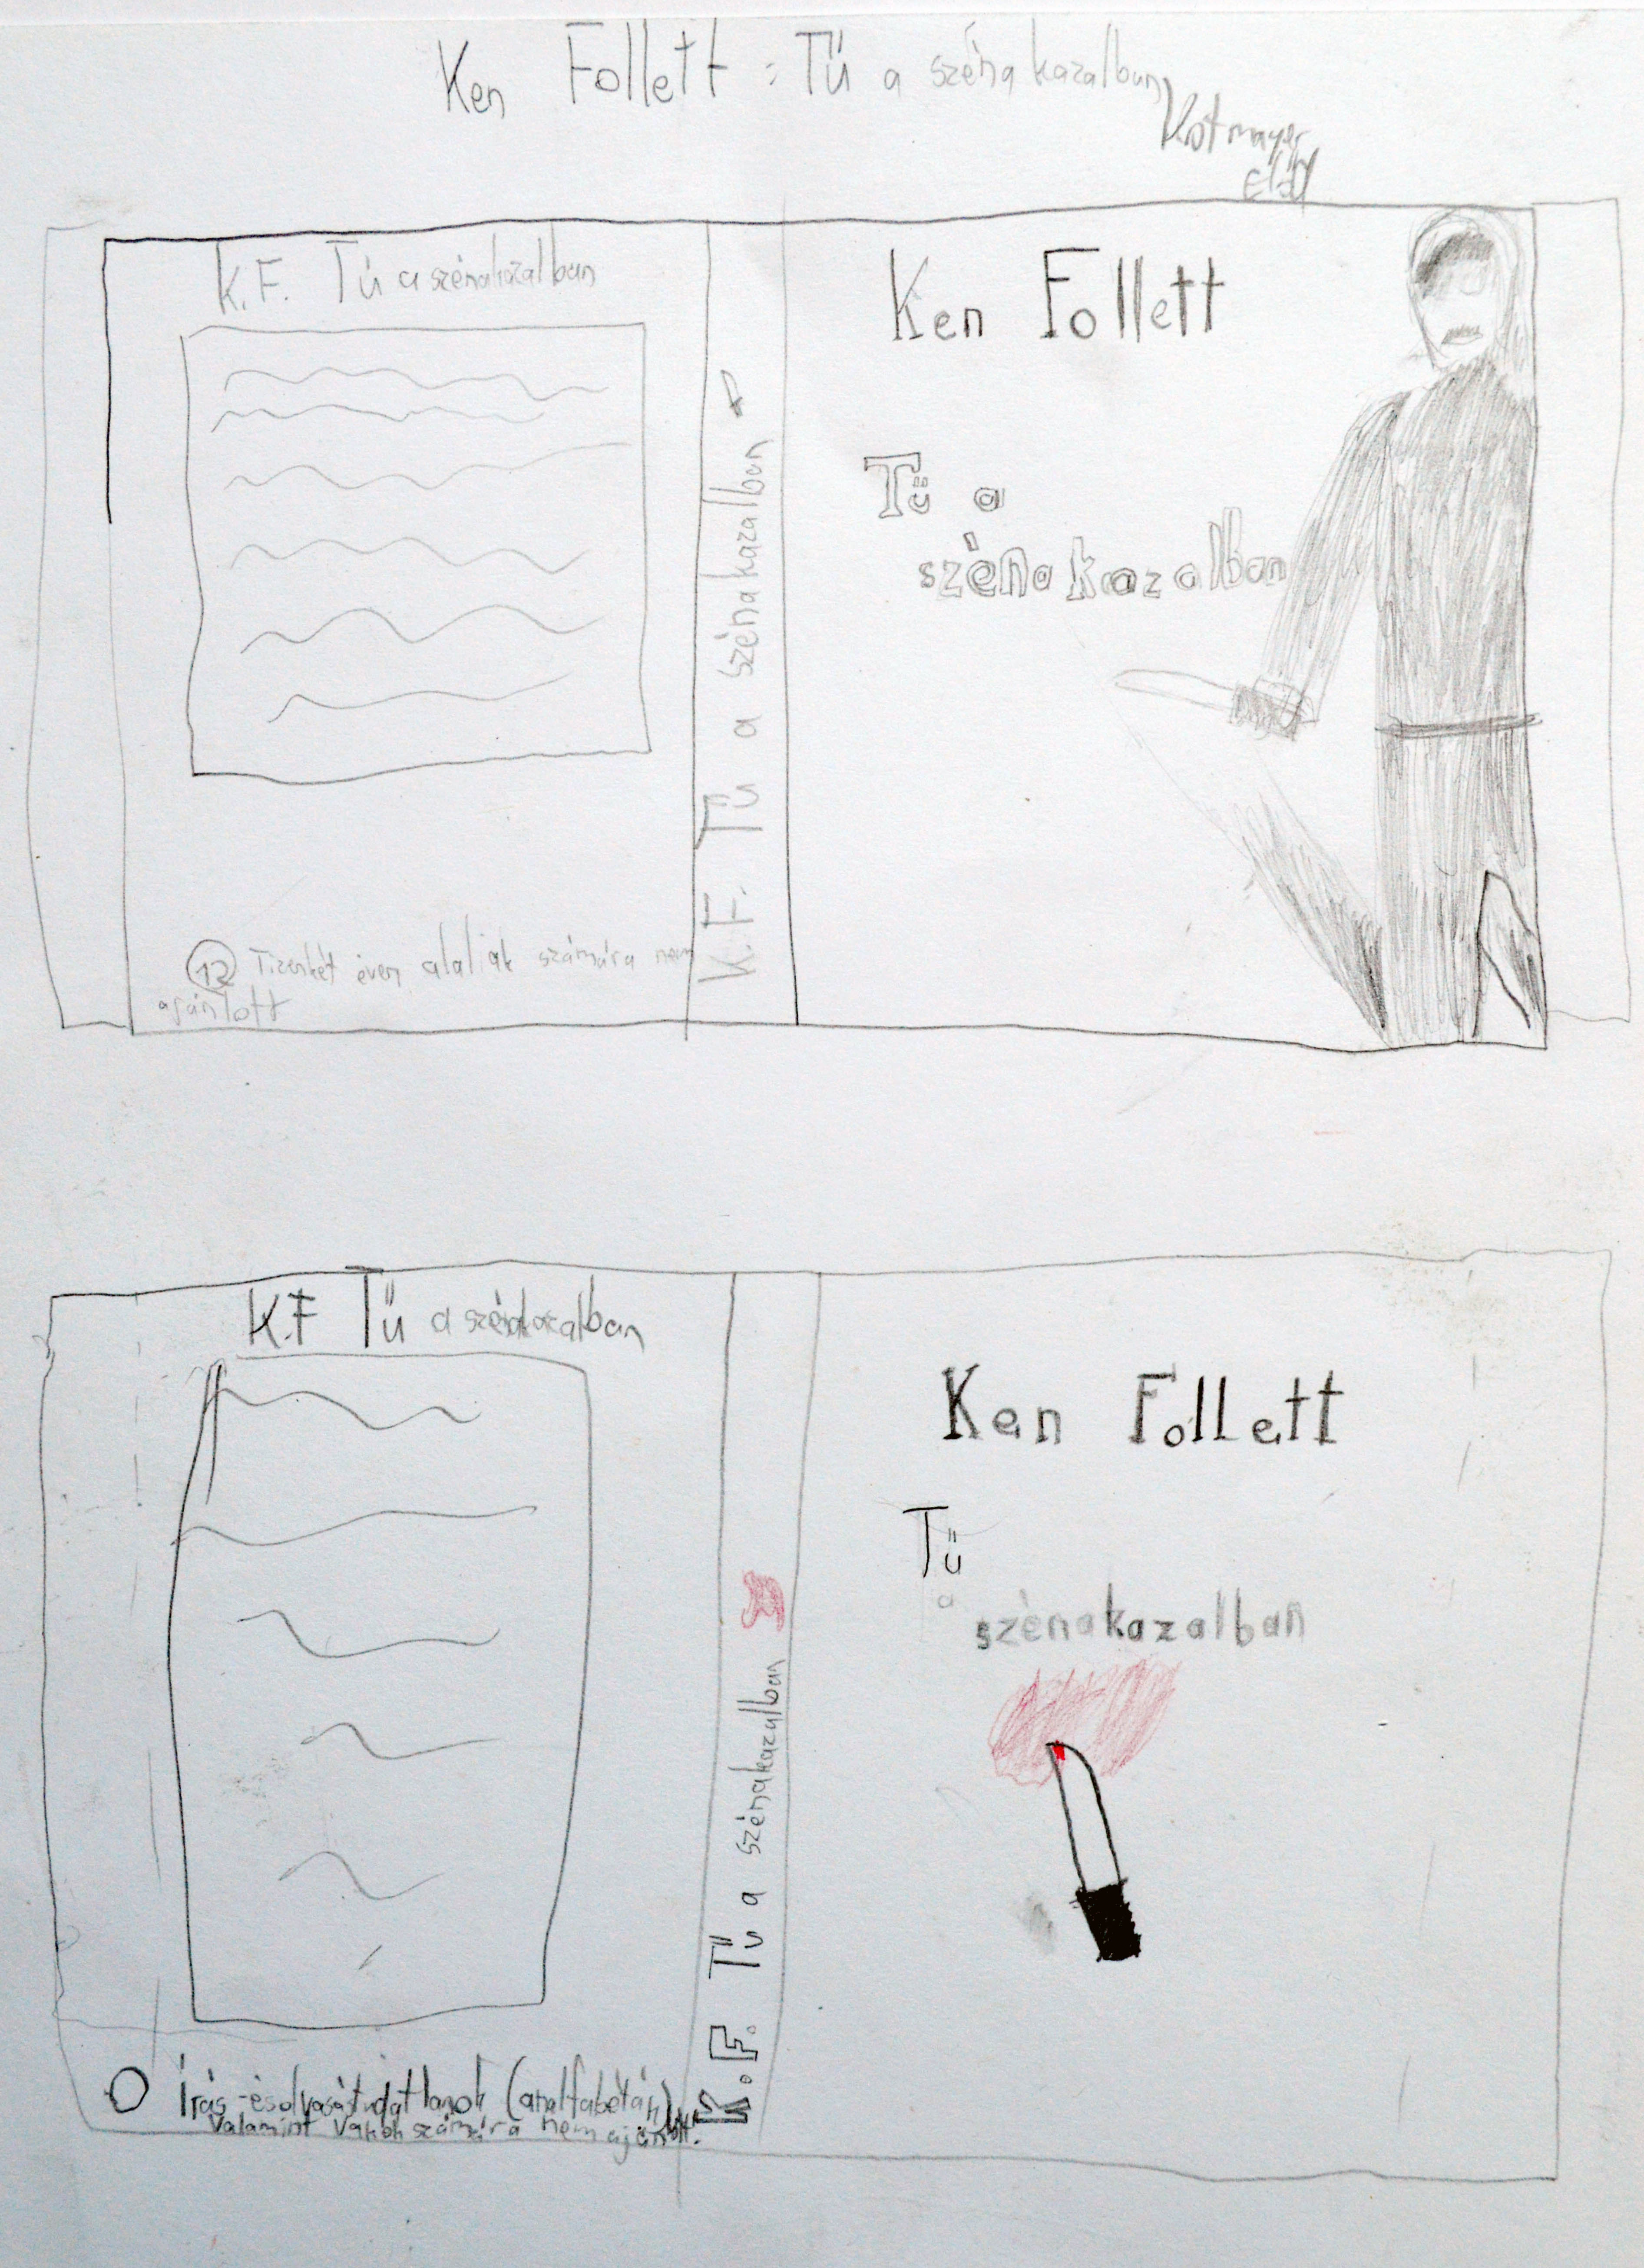 Ken Follett : Tű a szénakazalban
Kotmayer
K.F. Tű a szénakazalban
Ken Follett
Tű a
szénakazalban
K.F. Tű a szénakazalban
12 Tizenkét éven alaliak számára nem
ajánlott
K.F Tű a szénakazalban
Ken Follett
Tű
a
szénakazalban
K.F. Tű a szénakazalban
Írás-ésolvasástudatlanok (analfabéták),
valamint vakok számára nem ajánlott.